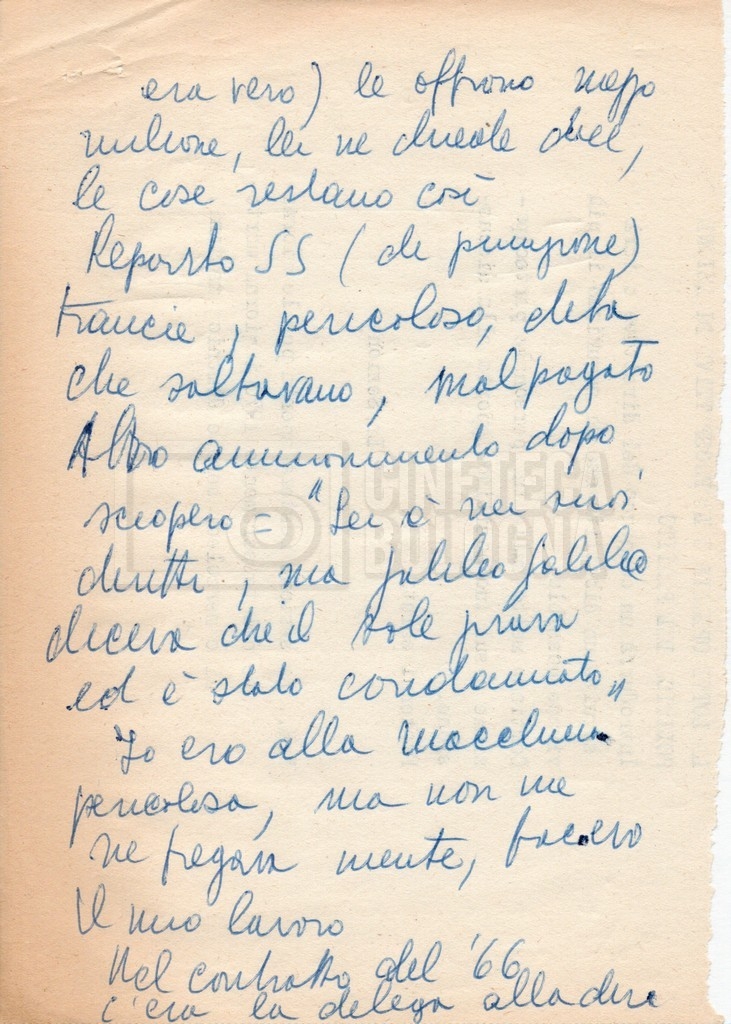 era vero) le offrono mezzo
milione, lei ne chiede dieci,
le cose restano così
Reparto SS (di punizione)
trancie, pericoloso, dita
che saltavano, mal pagato
Altro ammonimento dopo
sciopero = "Lei è nei suoi
diritti, ma Galileo Galilei
diceva che il sole girava
ed è stato condannato"
"Io ero alla macchina
pericolosa, ma non me
ne fregava niente, facevo
il mio lavoro
Nel contratto del '66
c'era la delega alla dire
CINETECA
BOLOGNA